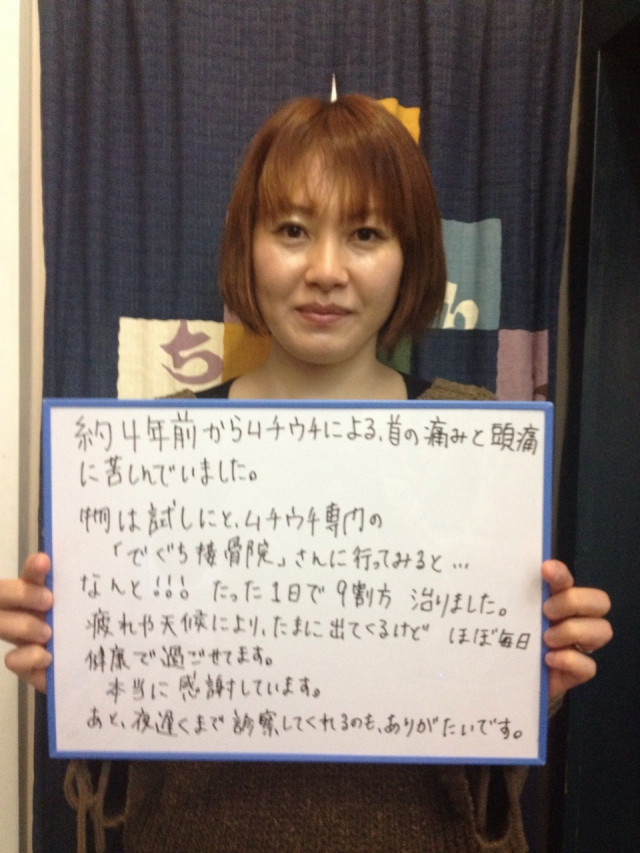 ち
約4年前からムチウチによる、首の痛みと頭痛
に苦しんでいました。
物は試しにと、ムチウチ専門の
「でぐち接骨院」さんに行ってみると…
なんと!!! たった1日で9割方 治りました。
疲れや天候により、たまに出てくるけど ほぼ毎日
健康で過ごせてます。
本当に感謝しています。
あと、夜遅くまで診察してくれるのも、ありがたいです。